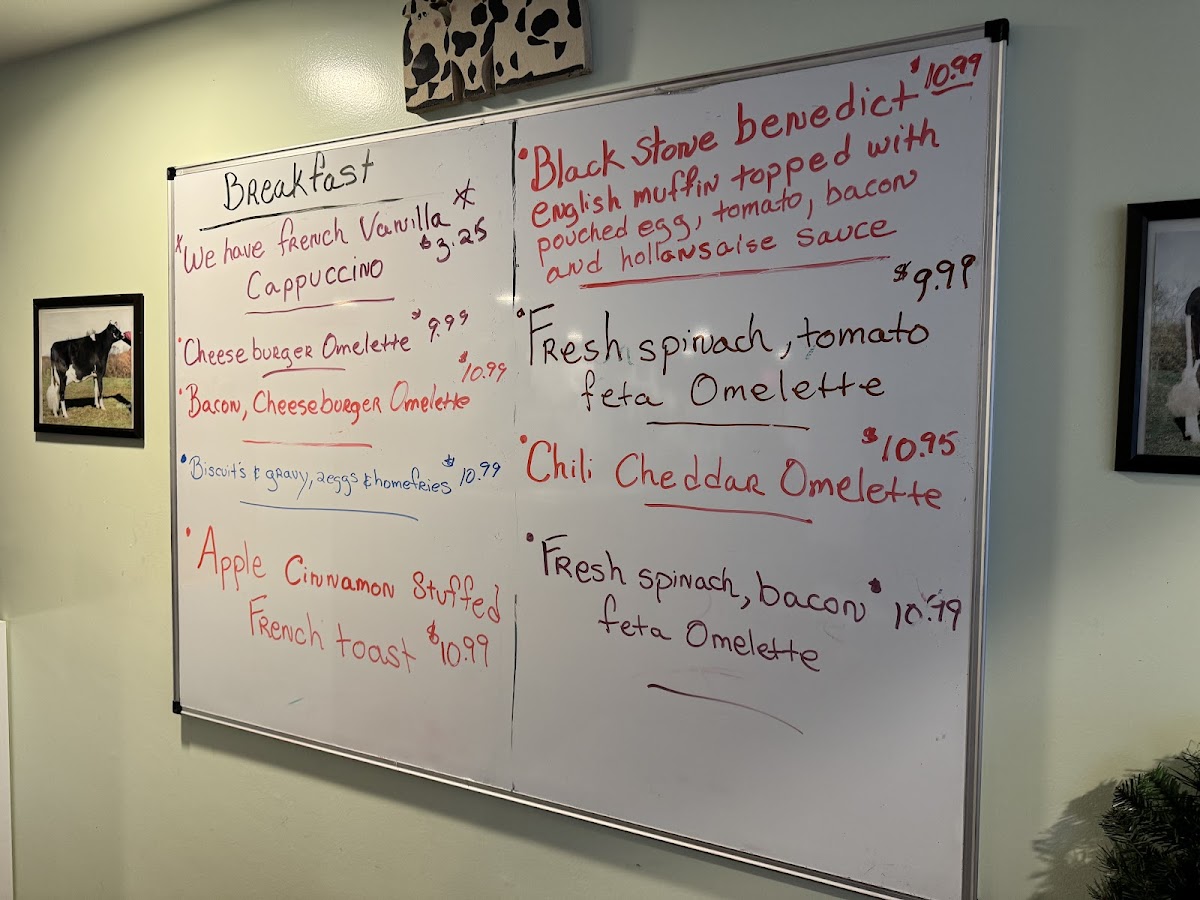 Breakfast
* We have french Vanilla *
Cappuccino $3.25
• Cheeseburger Omelette $9.99
• Bacon, Cheeseburger Omelette $10.99
• Biscuit's & gravy, 2eggs & homefries $10.99
• Apple Cinnamon Stuffed
French toast $10.99
• Black Stone benedict $10.99
english muffin topped with
pouched egg, tomato, bacon
and hollansaise sauce
• Fresh spinach, tomato $9.99
feta Omelette
• Chili Cheddar Omelette $10.95
• Fresh spinach, bacon $10.99
feta Omelette